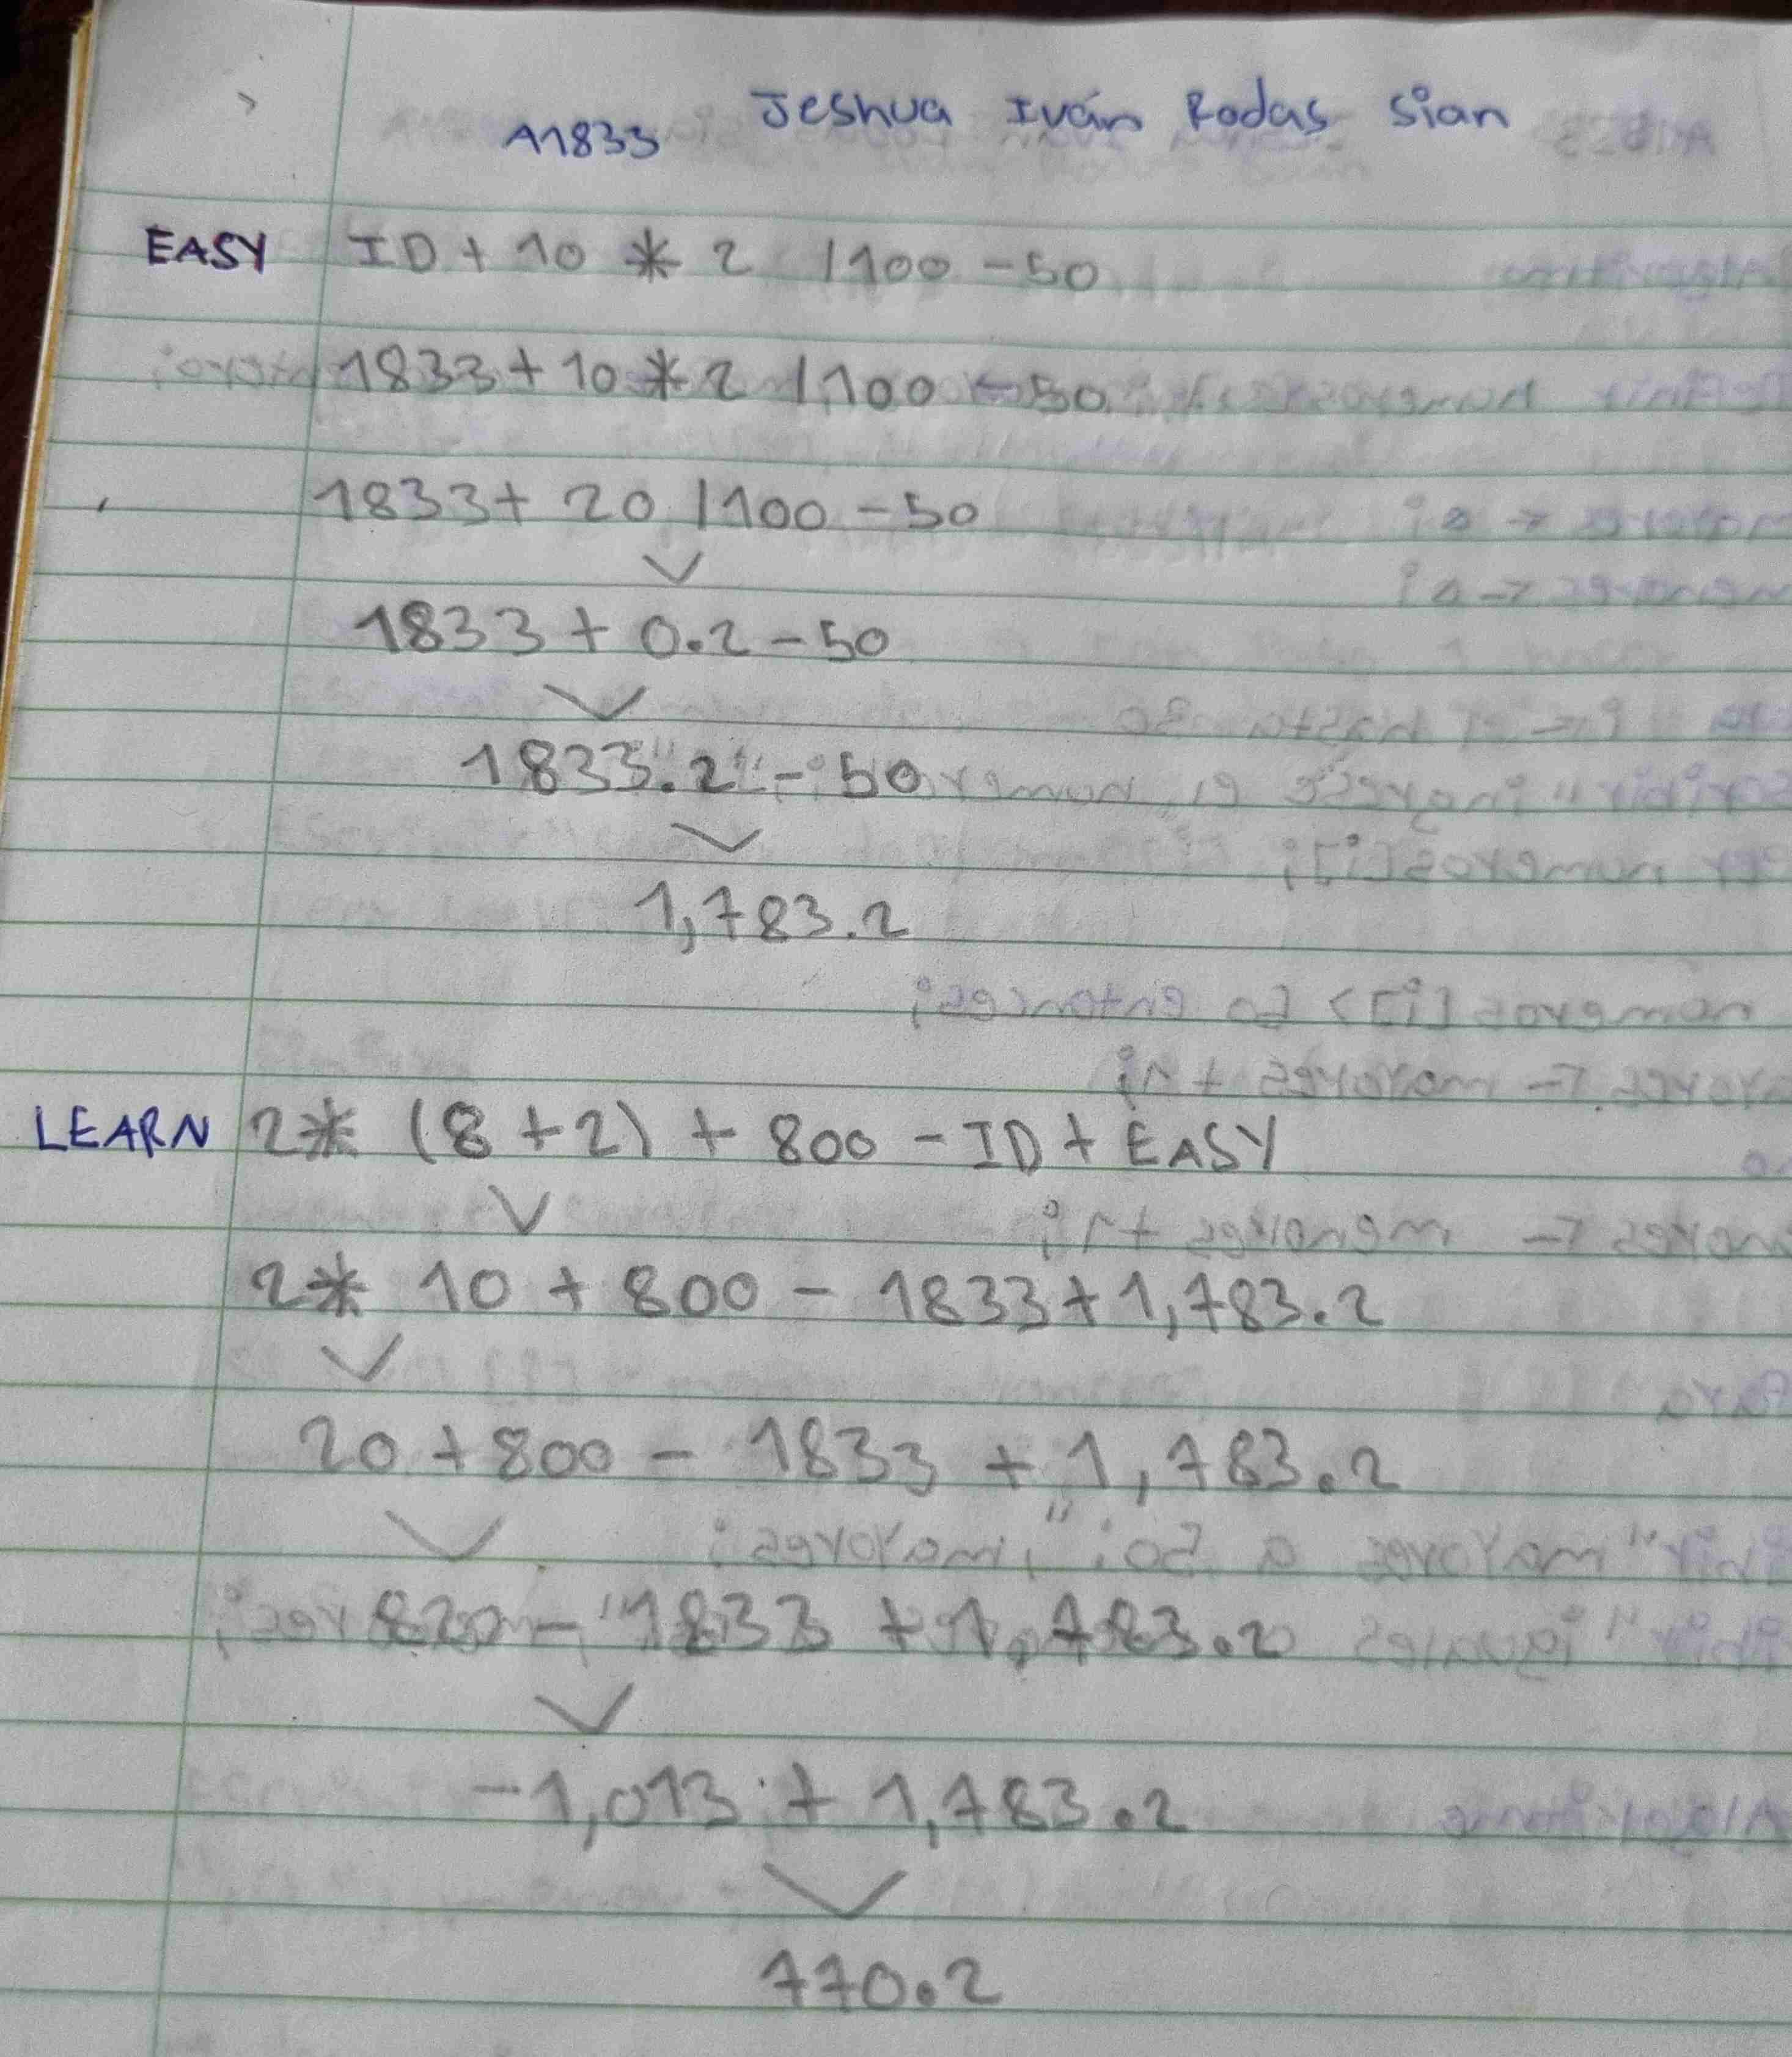 A1833 Jeshua Iván Rodas Sian
EASY ID + 10 * 2 / 100 - 50
1833 + 10 * 2 / 100 - 50
1833 + 20 / 100 - 50
1833 + 0.2 - 50
1833.2 - 50
1,783.2
LEARN 2 * (8 + 2) + 800 - ID + EASY
2 * 10 + 800 - 1833 + 1,783.2
20 + 800 - 1833 + 1,783.2
820 - 1833 + 1,783.2
-1,013 + 1,783.2
770.2